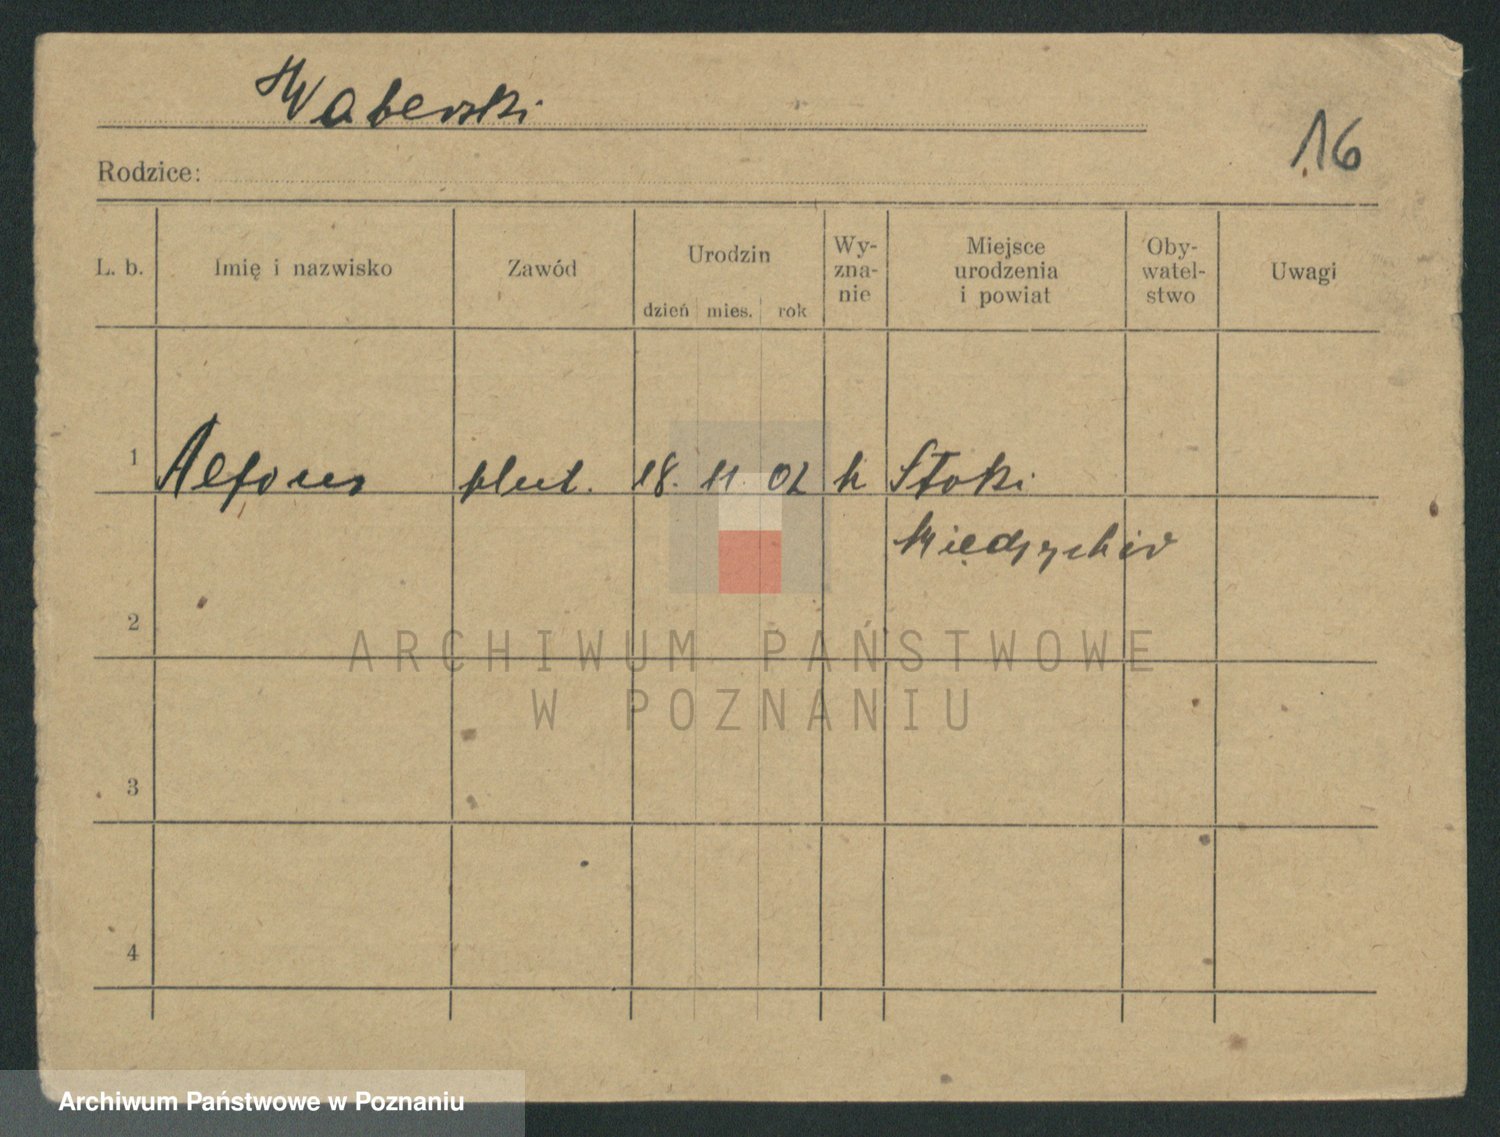 Waberski
16
Rodzice:
L. b.
Imię i nazwisko
Zawód
Urodzin
dzień mies. rok
Wy-
zna-
nie
Miejsce
urodzenia
i powiat
Oby-
watel-
stwo
Uwagi
1 Alfons plut. 18. 11. 02 k Stoki
Międzychód
2
3
4
ARCHIWUM PAŃSTWOWE
W POZNANIU
Archiwum Państwowe w Poznaniu